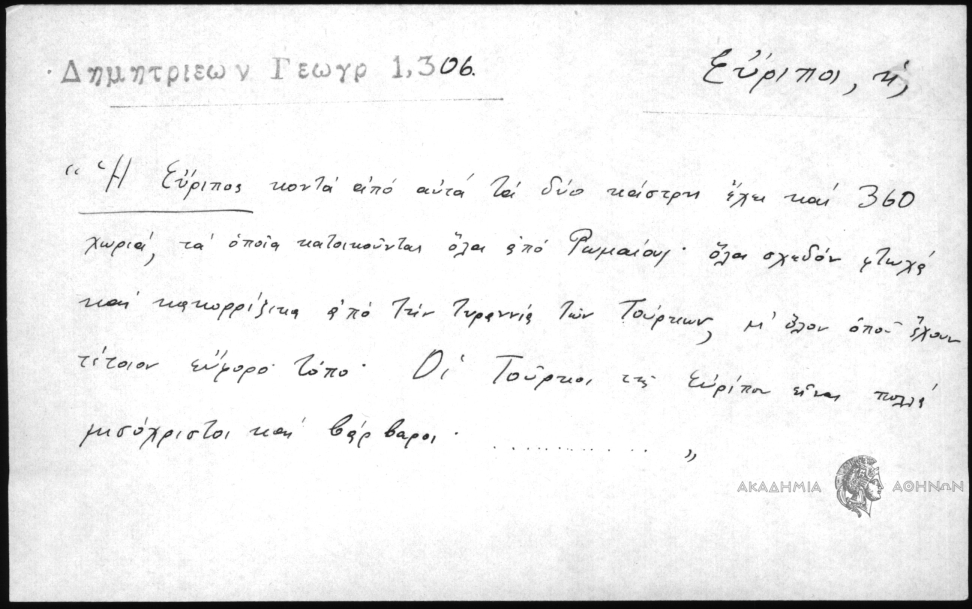 Δημητριεων Γεωγρ 1,306.
Εὔριπος, ἡ,
“Ἡ Εὔριπος κοντά ἀπό αὐτά τά δύο κάστρη ἔχει καί 360
χωριά, τά ὁποῖα κατοικοῦνται ὅλαι ἀπό Ρωμαίους· ὅλαι σχεδόν φτωχά
καί κακορρίζικα ἀπό τήν τυραννία τῶν Τούρκων, μ' ὅλον ὁποῦ ἔχουν
τέτοιον εὔφορο τόπο· Οἱ Τοῦρκοι τῆς Εὐρίπου εἶναι πολλά
μισόχριστοι καί βάρβαροι· ............ ”
ΑΚΑΔΗΜΙΑ ΑΘΗΝΩΝ